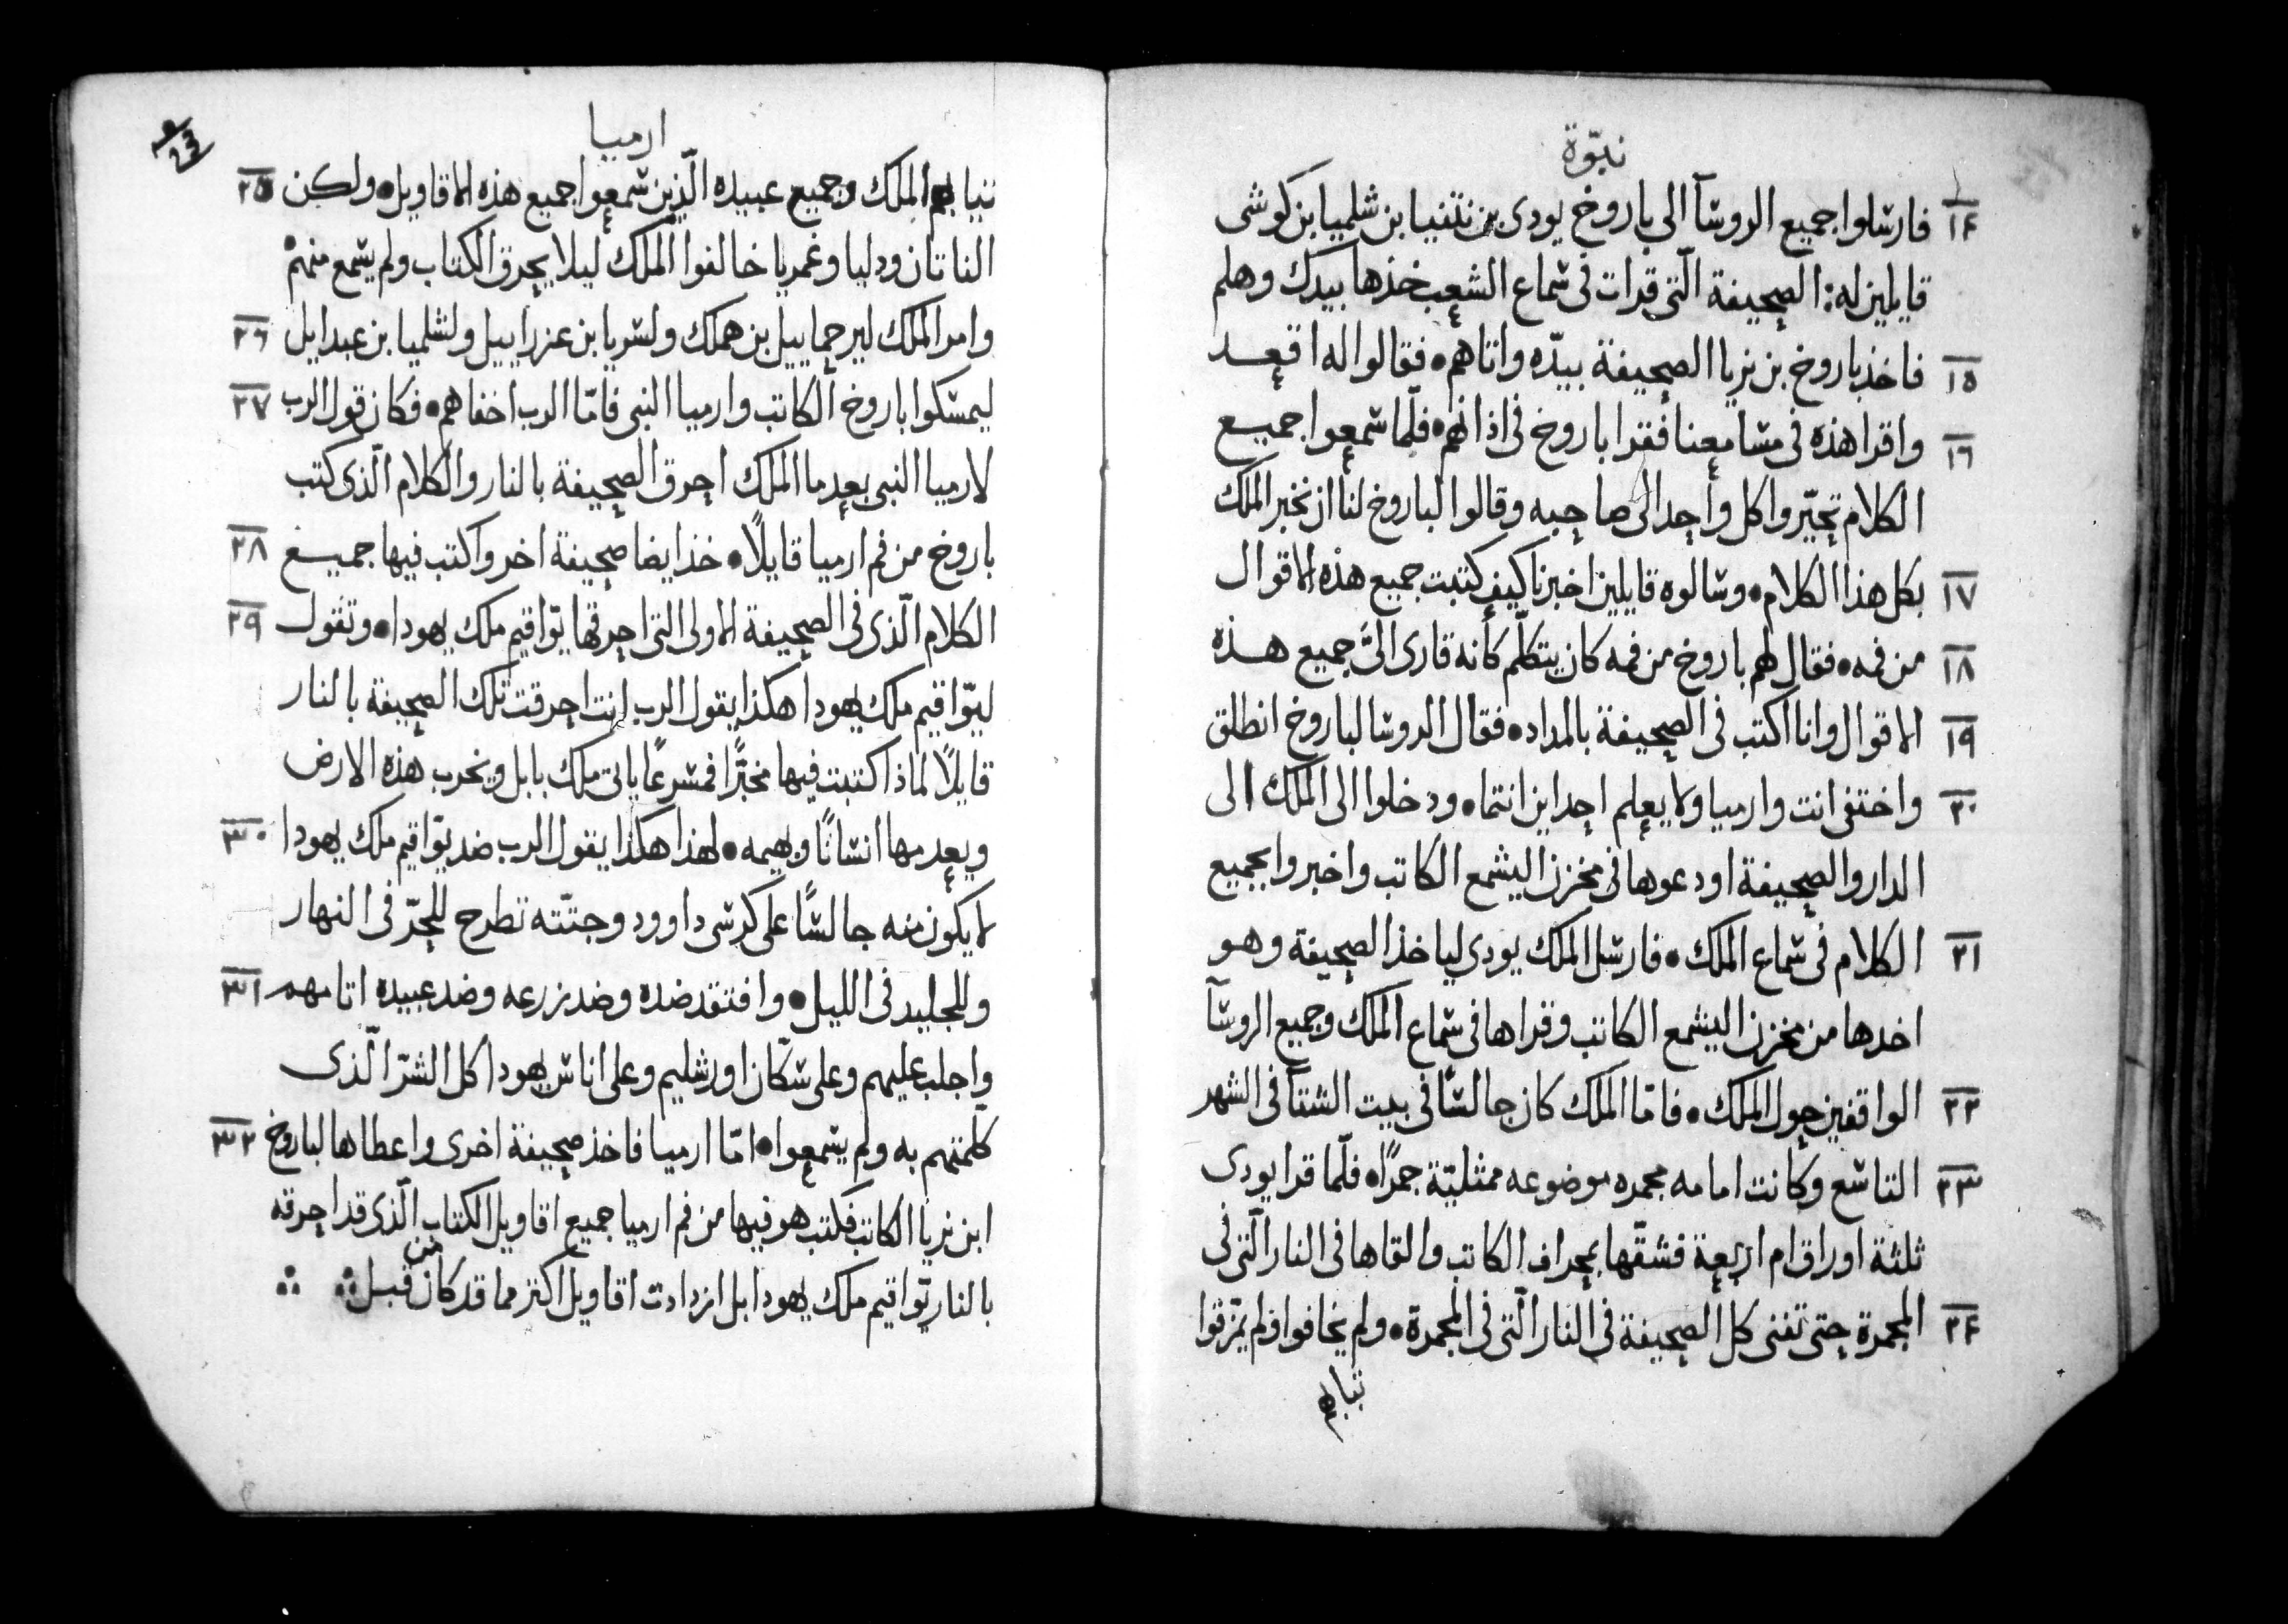 نبوّة
١٤ فارسلوا جميع الروسآ الي باروخ يودى بن نتنيا بن شلميا بن كوشى
قايلين له: الصحيفة الّتى قرات فى سماع الشعب خذها بيدك وهلم
١٥ فاخذ باروخ بن نريا الصحيفة بيدّه واتاهم • فقالوا له اقعد
١٦ واقرا هذه فى مسامعنا فقرا باروخ فى اذانهم • فلّما سمعوا جميع
الكلام تحيّروا كل واحد الى صاحبه وقالوا لباروخ لنا ان نخبر الملك
١٧ بكل هذا الكلام • وسالوه قايلين اخبرنا كيف كتبت جميع هذه الاقوال
١٨ من فمه • فقال لهم باروخ من فمه كان يتكلّم كأنه قارى الىّ جميع هذه
١٩ الاقوال وانا اكتب فى الصحيفة بالمداد • فقال الروسا لباروخ انطلق
٢٠ واختفى انت وارميا ولا يعلم احد اين انتما • ودخلوا الى الملك الى
الدار والصحيفة اودعوها فى مخزن اليشمع الكاتب واخبروا بجميع
٢١ الكلام فى سماع الملك • فارسل الملك يودي لياخذ الصحيفة وهو
اخدها من مخزن اليشمع الكاتب وقراها فى سماع الملك وجميع الروسآ
٢٢ الواقفين حول الملك • فامّا الملك كان جالسًا فى بيت الشتآ فى الشهر
٢٣ التاسع وكانت امامه مجمره موضوعه ممتليّة جمرًا • فلّما قرا يودى
ثلثة اوراق ام اربعة فشقّها بحراف الكاتب والقاها فى النار الّتى فى
٢٤ المجمرة حتى تفنى كل الصحيفة فى النار الّتى فى المجمرة • ولم يخافوا ولم يمزقوا
ثيابهم
ارميا
ثيابهم الملك وجميع عبيده الّذين سمعوا جميع هذه الاقاويل • ولكن ٢٥
الناتان ودليا وغمريا خالفوا الملك ليلا يحرق الكتاب ولم يسمع منهم •
وامر الملك ليرحماييل بن هملك ولسريا بن عزراييل ولشلميا بن عبدايل ٢٦
ليمسكوا باروخ الكاتب وارميا النبى فامّا الرب اخفاهم • فكان قول الرب ٢٧
لارميا النبى بعد ما الملك احرق الصحيفة بالنار والكلام الّذى كتب
باروخ من فم ارميا قايلًا • خذ ايضا صحيفة اخر واكتب فيها جميع ٢٨
الكلام الّذى فى الصحيفة الاولى التى احرقها يوّاقيم ملك يهودا • وتقول ٢٩
ليوّاقيم ملك يهودا هكذا يقول الرب انت احرقت تلك الصحيفة بالنار
قايلًا لماذا كتبت فيها مخبرًّا فمسرعًا ياتى ملك بابل ويخرب هذه الارض
ويعدمها انسانًا وبهيمه • لهذا هكذا يقول الرب ضد يوّاقيم ملك يهودا ٣٠
لا يكون منه جالسًا على كرسى داوود وجتّته تطرح للحرّ فى النهار
وللجليد فى الليل • وافتقد ضده وضد زرعه وضد عبيده اتامهم ٣١
واجلب عليهم وعلى سكّان اورشليم وعلى اناس يهودا كل الشرّ الّذى
كلّمتهم به ولم يسمعوا • امّا ارميا فاخذ صحيفة اخرى واعطاها لباروخ ٣٢
ابن نريا الكاتب فكتب هو فيها من فم ارميا جميع اقاويل الكتاب الّذى قد احرقه
بالنار يوّاقيم ملك يهودا بل ازدادت اقاويل اكتر مما قد كان من قبل ∴ ∴